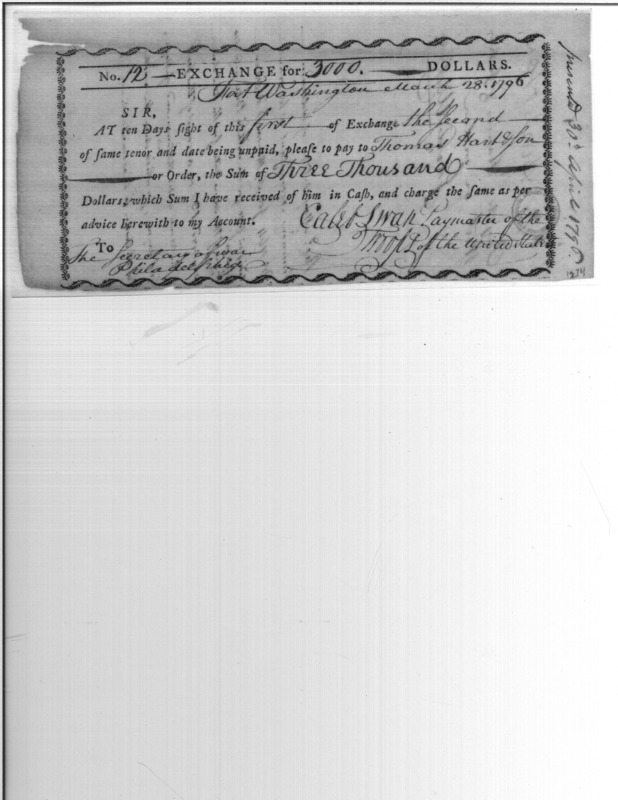 No. 12 — EXCHANGE for 3000. — DOLLARS.
Fort Washington March 28. 1796
SIR,
AT ten Days sight of this first — of Exchange the Second
of same tenor and date being unpaid, please to pay to Thomas Hart & Son
— or Order, the Sum of Three Thousand —
Dollars, which Sum I have received of him in Cash, and charge the same as per
advice herewith to my Account. Caleb Swan Paymaster of the
Troops of the United States
To
The Secretary of war
Philadelphia
presented 30th April 1796
1234